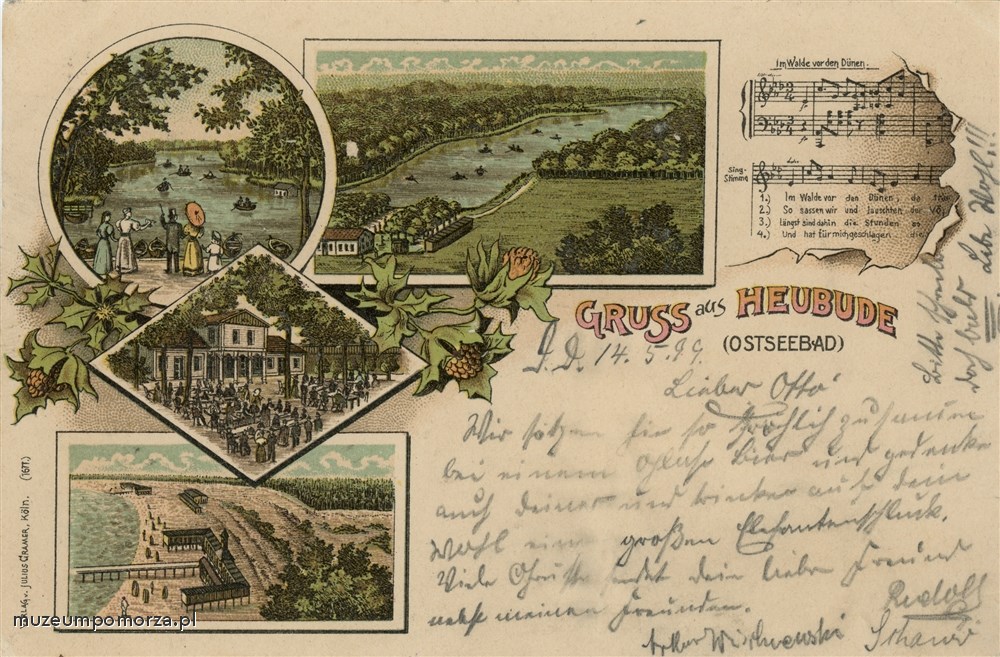 Im Walde vor den Dünen.
Sing-
Stimme
1.) Im Walde vor den Dünen, da
2.) So sassen wir und lauschten der
3.) längst sind dahin die Stunden
4.) Und hat für mich geschlagen, die
GRUSS aus HEUBUDE
(OSTSEEBAD)
D. D. 14. 5. 99.
Lieber Otto
Wir sitzen hier so fröhlich zusammen
bei einem Glase Bier und gedenken
auch deiner und trinken auf dein
Wohl einen großen Elefantenschluck.
Viele Grüsse sendet dein lieber Freund
Rudolf
nebst meinen Freunden.
doch bald Lebe Wohl!!!
VERLAG v. JULIUS CRAMER, KÖLN. (1677.)
muzeumpomorza.pl